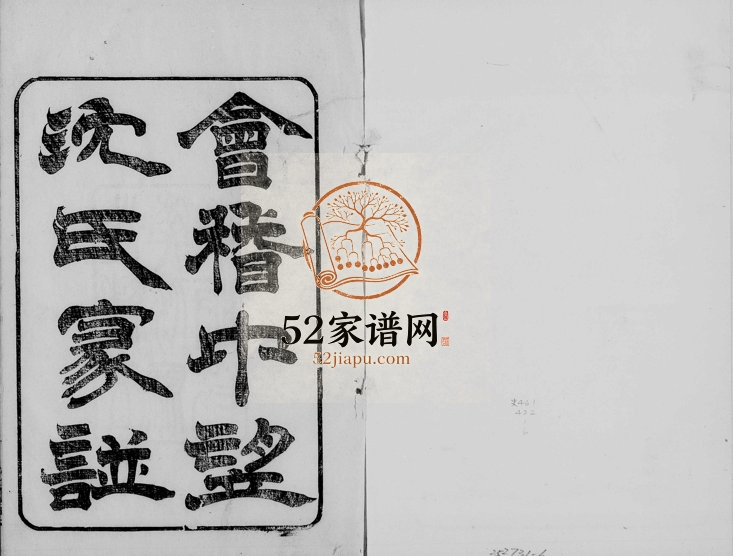 會稽中望
沈氏家諩
52家谱网
52jiapu.com